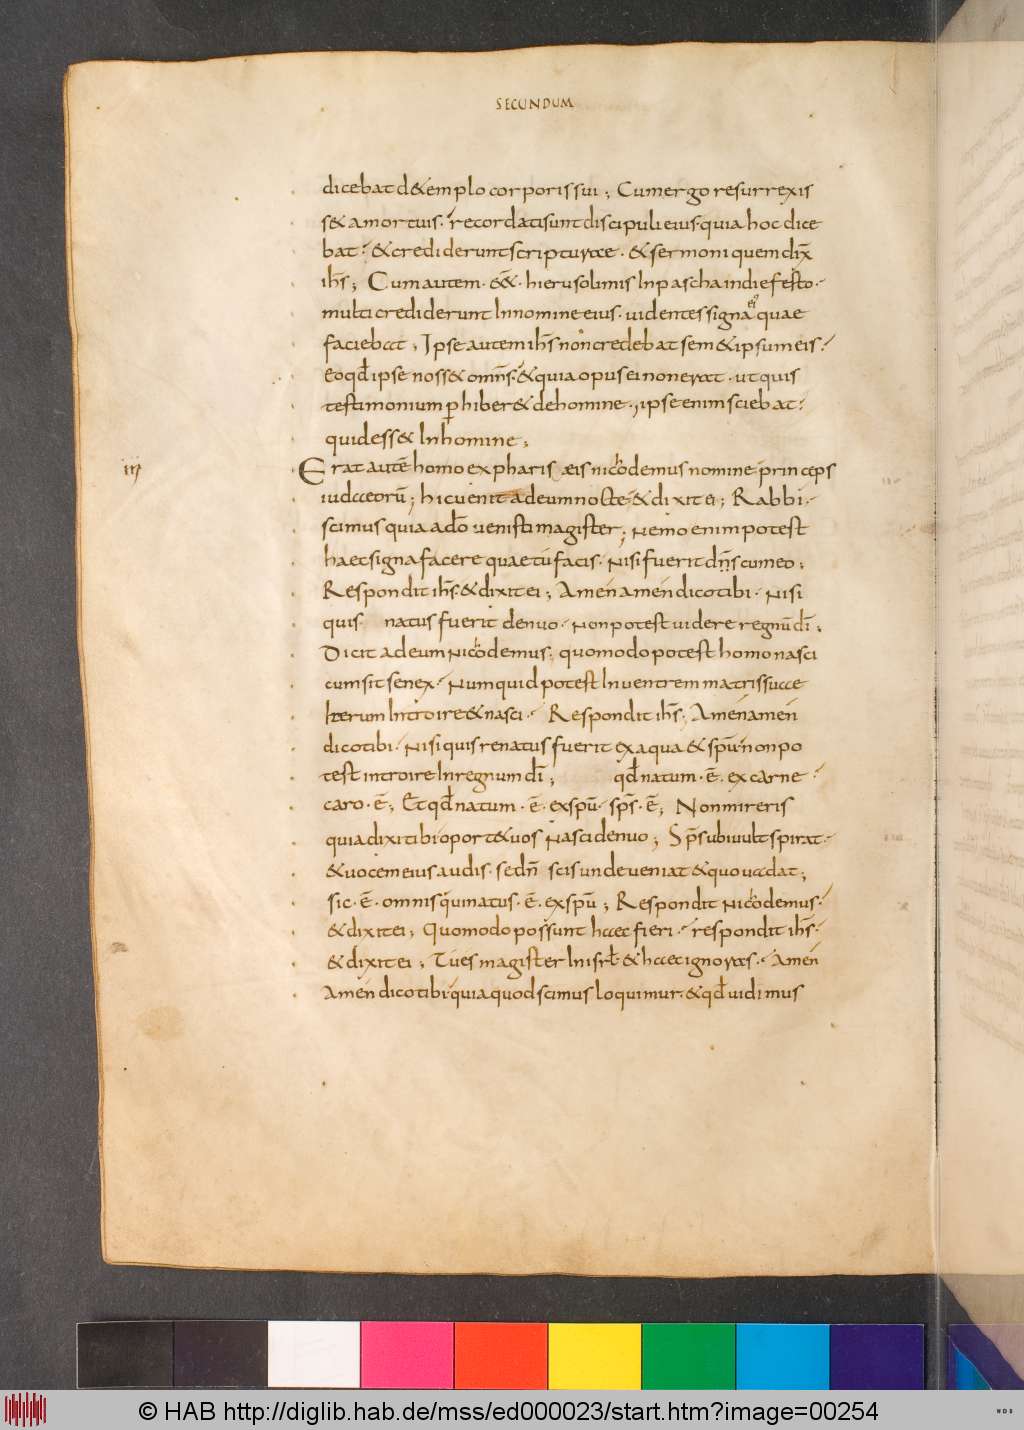 SECUNDUM
dicebat d&emplo corporis sui; Cum ergo resurrexis
s& a mortuis· recordati sunt discipuli eius· quia hoc dice
bat· & crediderunt scripturae· & sermoni quem dix̄
ih̄s; Cum autem· ēē&· hierusolimis In pascha in die festo·
multi crediderunt In nomine eius· uidentes signa ei᷒ quae
faciebat; Ipse autem ih̄s non credebat sem&ipsum eis·
Eo qđ ipse noss& omn̄s· & quia opus ei non erat· ut quis
testimonium p̱hiber& de homine·, ipse enim sciebat·
quid ess& In homine;
iij
Erat autē homo ex pharisaeis nicodemus nomine princeps
iudaeorū; hic uenit ad eum nocte· & dixit ei; Rabbi·
scimus quia a dō uenisti magister; Nemo enim potest
haec signa facere quae tu facis· Nisi fuerit dn̄s cum eo;
Respondit ih̄s· & dixit ei; Amen amen dico tibi· Nisi
quis natus fuerit denuo· Non potest uidere regnū dī;
Dicit ad eum Nicodemus; quomodo potest homo nasci
cum sit senex· Numquid potest In uentrem matris suae
Iterum Introire & nasci· Respondit ih̄s; Amen amen
dico tibi· Nisi quis renatus fuerit ex aqua & spū· non po
test introire In regnum dī; qđ natum· ē· ex carne·
caro· ē; Et qđ natum· ē· ex spū· sp̄s· ē; Non mireris
quia dixi tibi oport& uos Nasci denuo; Sp̄s ubi uult spirat·
& uocem eius audis· sed n̄ scis unde ueniat & quo uadat;
sic· ē· omnis qui natus· ē· ex spū; Respondit Nicodemus·
& dixit ei; Quomodo possunt haec fieri· respondit ih̄s·
& dixit ei; Tu es magister In isrƚ· & haec ignoras· Amen
Amen dico tibi quia quod scimus loquimur· & qđ uidimus
© HAB http://diglib.hab.de/mss/ed000023/start.htm?image=00254